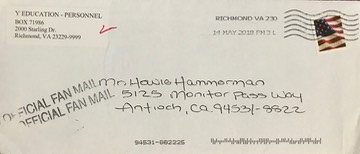 Y EDUCATION - PERSONNEL
BOX 71986
2000 Starling Dr.
Richmond, VA 23229-9999
RICHMOND VA 230
14 MAY 2018 PM 3 L
OFFICIAL FAN MAIL
OFFICIAL FAN MAIL
Mr. Howie Hammerman
5125 Monitor Pass Way
Antioch, CA 94531-8822
94531-882225